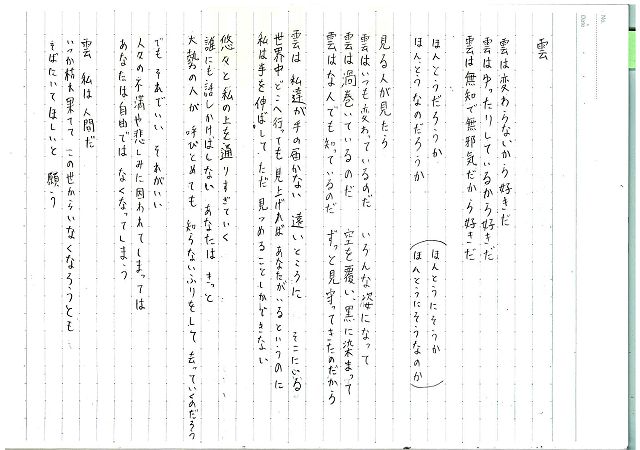 雲
雲は変わらないから好きだ
雲はゆったりしているから好きだ
雲は無知で無邪気だから好きだ
ほんとうだろうか (ほんとうにそうか
ほんとうなのだろうか ほんとうにそうなのか)
見る人が見たら
雲はいつも変わっているのだ いろんな姿になって
雲は渦巻いているのだ 空を覆い、黒に染まって
雲はなんでも知っているのだ ずっと見守ってきたのだから
雲は 私達が手の届かない 遠いところに そこにいる
世界中どこへ行っても見上げれば あなたがいるというのに
私は手を伸ばして ただ 見つめることしかできない
悠々と 私の上を通りすぎていく
誰にも話しかけはしない あなたは きっと
大勢の人が 呼びとめても 知らないふりをして 去っていくのだろう
でも それでいい それがいい
人々の不満や悲しみに囚われてしまっては
あなたは自由では なくなってしまう
雲 私は人間だ
いつか枯れ果てて この世からいなくなろうとも
そばにいてほしいと 願う
No.
Date